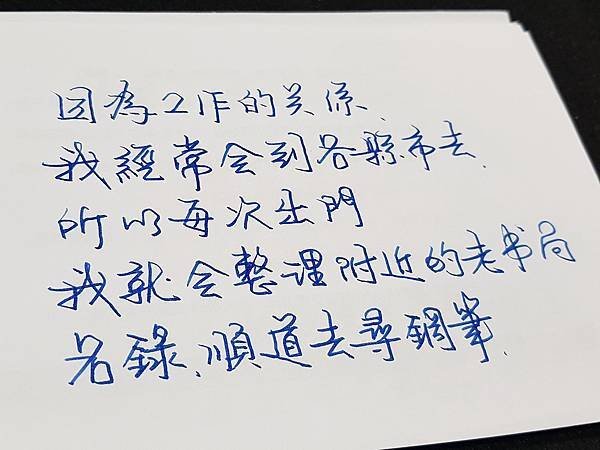 因為工作的关係、
我經常会到各縣市去、
所以每次出門
我就会整理附近的老书局
名錄、順道去尋鋼筆、